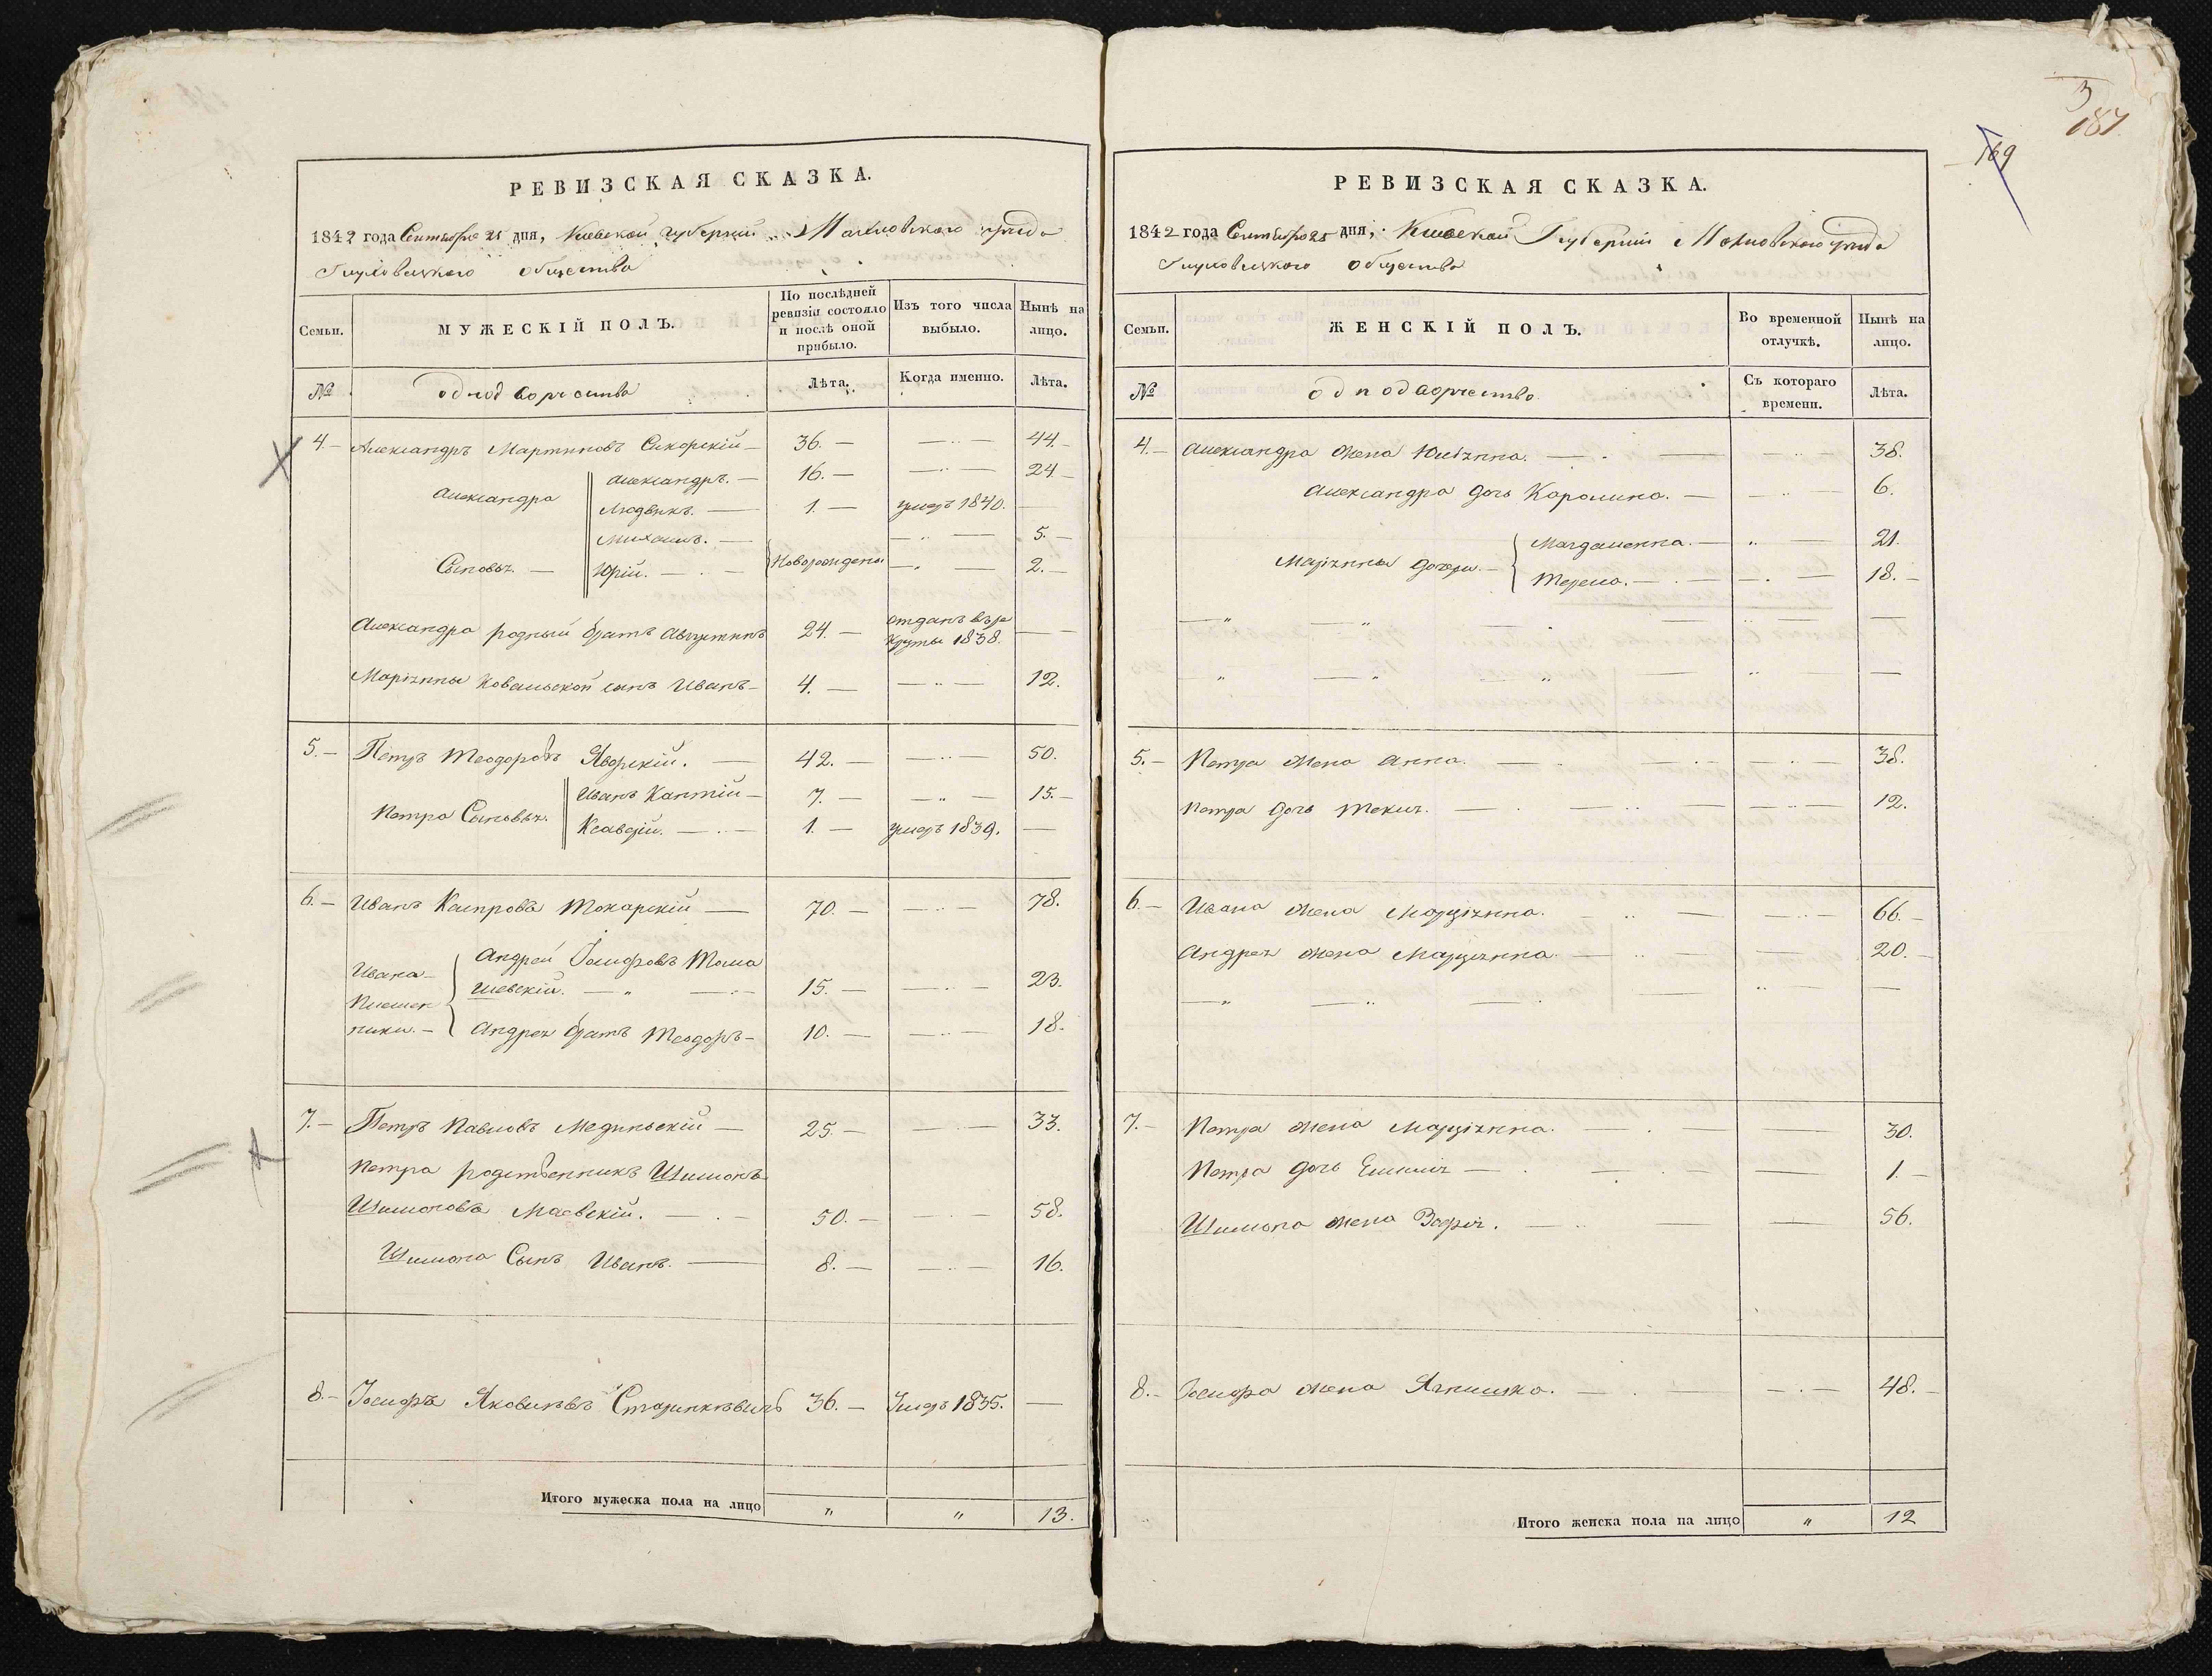 РЕВИЗСКАЯ СКАЗКА.
1842 года Сентября 25 дня, Киевской губернии Махновского уезда
Глуховецкого общества
Семьи.
МУЖЕСКІЙ ПОЛЪ.
По послѣдней ревизіи состояло и послѣ оной прибыло.
Изъ того числа выбыло.
Нынѣ на лицо.
№
однодворчества
Лѣта.
Когда именно.
Лѣта.
4.- Александръ Мартиновъ Сикорскій — 36. — — 44.
Александръ. — 16. — — 24
Александра
Людвикъ. — 1. — умеръ 1840. —
Михаилъ. — — 5.
Сыновья. — Юрій. — Новорождены — 2.
Александра родный братъ Августинъ 24. — отданъ въ ре
круты 1838. —
Маріянны Ковальской сынъ Иванъ — 4. — — 12.
5.- Петръ Теодоровъ Яворскій. — 42. — — 50.
Иванъ Кантій — 7. — — 15.
Петра Сыновья.
Ксаверій. — 1. — умеръ 1839. —
6.- Иванъ Каспровъ Токарскій — 70. — — 78.
Андрей Іосифовъ Тома
Ивана
шевскій. — 15. — — 23.
Племен
ники. — Андрея братъ Теодоръ — 10. — — 18.
7.- Петръ Павловъ Мединскій — 25 — — 33.
Петра родственникъ Шимонъ
Шимоновъ Маевскій. — 50. — — 58.
Шимона Сынъ Иванъ. — 8. — — 16.
8.- Іосифъ Яковлевъ 36. — Умеръ 1835. —
Итого мужеска пола на лицо " " 13.
3
187
169
РЕВИЗСКАЯ СКАЗКА.
1842 года Сентября 25 дня, Киевской Губерніи Махновского уезда
Глуховецкого общества
Семьи.
ЖЕНСКІЙ ПОЛЪ.
Во временной отлучкѣ.
Нынѣ на лицо.
№
однодворчество
Съ котораго времени.
Лѣта.
4.- Александра жена Юліянна. — — 38.
Александра дочь Каролина. — — 6.
Магдаленна. — — 21.
Маріянны дочери. —
Тереса. — — 18.
5.- Петра жена Анна. — — 38.
Петра дочь Текля. — — 12.
6.- Ивана жена Марціянна. — — 66.
Андрея жена Марціянна. — — 20.
7.- Петра жена Марціянна. — — 30.
Петра дочь Емилія — — 1.
Шимона жена Зофія. — — 56.
8.- Іосифа жена Ягнишка. — — 48.
Итого женска пола на лицо " 12